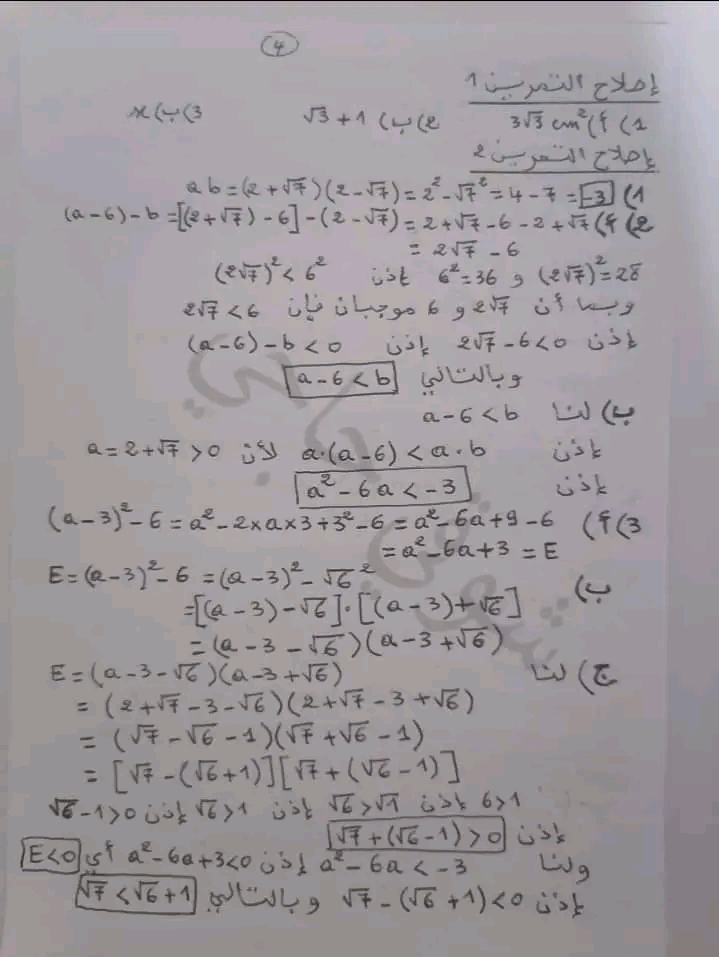 4
إصلاح التمرين 1
1) أ) 3√3 cm² 2) ب) √3 + 1 3) ب) x
إصلاح التمرين 2
1) ab = (2 + √7)(2 - √7) = 2² - √7² = 4 - 7 = -3
2) أ) (a - 6) - b = [(2 + √7) - 6] - (2 - √7) = 2 + √7 - 6 - 2 + √7
= 2√7 - 6
(2√7)² = 28 و 6² = 36 إذن (2√7)² < 6²
وبما أن 2√7 و 6 موجبان فإن 2√7 < 6
إذن 2√7 - 6 < 0 إذن (a - 6) - b < 0
وبالتالي a - 6 < b
ب) لنا a - 6 < b
إذن a·(a - 6) < a·b لأن a = 2 + √7 > 0
إذن a² - 6a < -3
3) أ) (a - 3)² - 6 = a² - 2×a×3 + 3² - 6 = a² - 6a + 9 - 6
= a² - 6a + 3 = E
ب) E = (a - 3)² - 6 = (a - 3)² - √6²
= [(a - 3) - √6]·[(a - 3) + √6]
= (a - 3 - √6)(a - 3 + √6)
ج) لنا E = (a - 3 - √6)(a - 3 + √6)
= (2 + √7 - 3 - √6)(2 + √7 - 3 + √6)
= (√7 - √6 - 1)(√7 + √6 - 1)
= [√7 - (√6 + 1)][√7 + (√6 - 1)]
6 > 1 إذن √6 > √1 إذن √6 > 1 إذن √6 - 1 > 0
إذن √7 + (√6 - 1) > 0
ولنا a² - 6a < -3 إذن a² - 6a + 3 < 0 أي E < 0
إذن √7 - (√6 + 1) < 0 وبالتالي √7 < √6 + 1